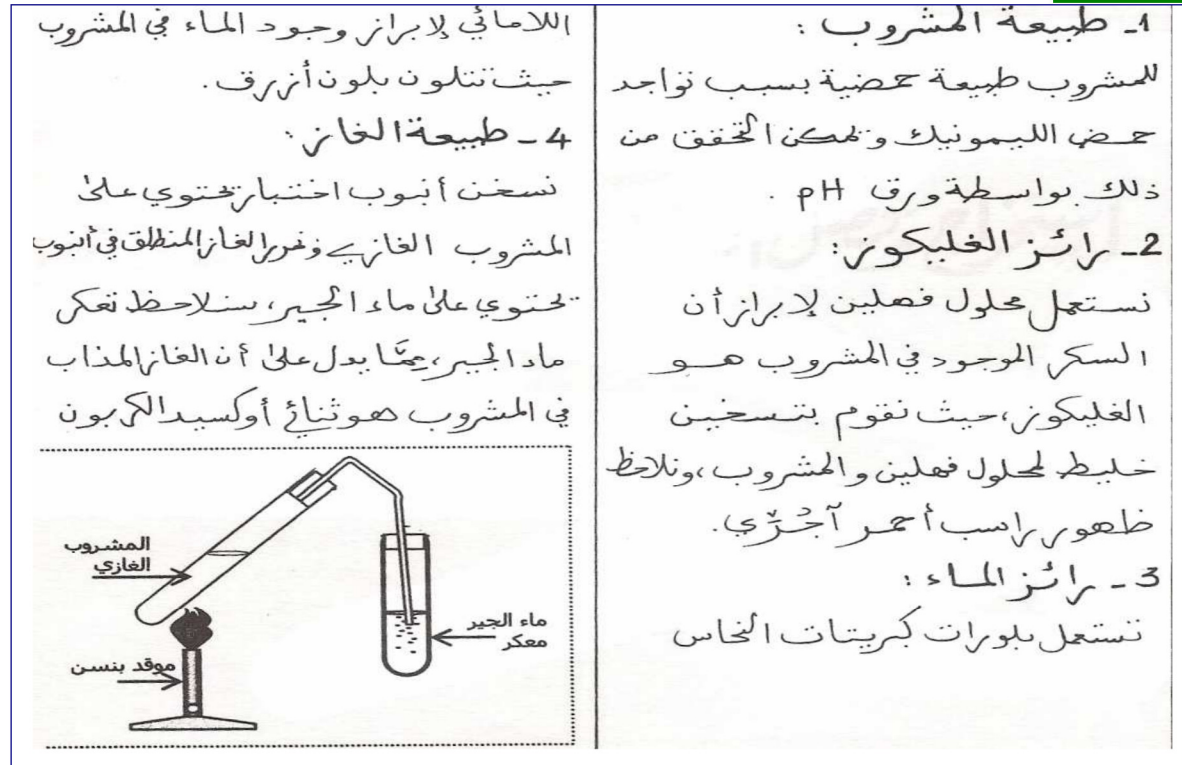 1ـ طبيعة المشروب :
للمشروب طبيعة حمضية بسبب تواجد
حمض الليمونيك ويمكن التحقق من
ذلك بواسطة ورق pH .
2ـ رائز الغليكوز:
نستعمل محلول فهلين لإبراز أن
السكر الموجود في المشروب هو
الغليكوز، حيث نقوم بتسخين
خليط لمحلول فهلين والمشروب، ونلاحظ
ظهور راسب أحمر آجُرّي.
3 ـ رائز الماء :
نستعمل بلورات كبريتات النحاس
اللامائي لإبراز وجود الماء في المشروب
حيث تتلون بلون أزرق.
4 ـ طبيعة الغاز:
نسخن أنبوب اختبار يحتوي على
المشروب الغازي ونمرر الغاز المنطلق في أنبوب
يحتوي على ماء الجير، سنلاحظ تعكر
ماء الجير، ممّا يدل على أن الغاز المذاب
في المشروب هو ثنائي أوكسيد الكربون
المشروب
الغازي
ماء الجير
معكر
موقد بنسن